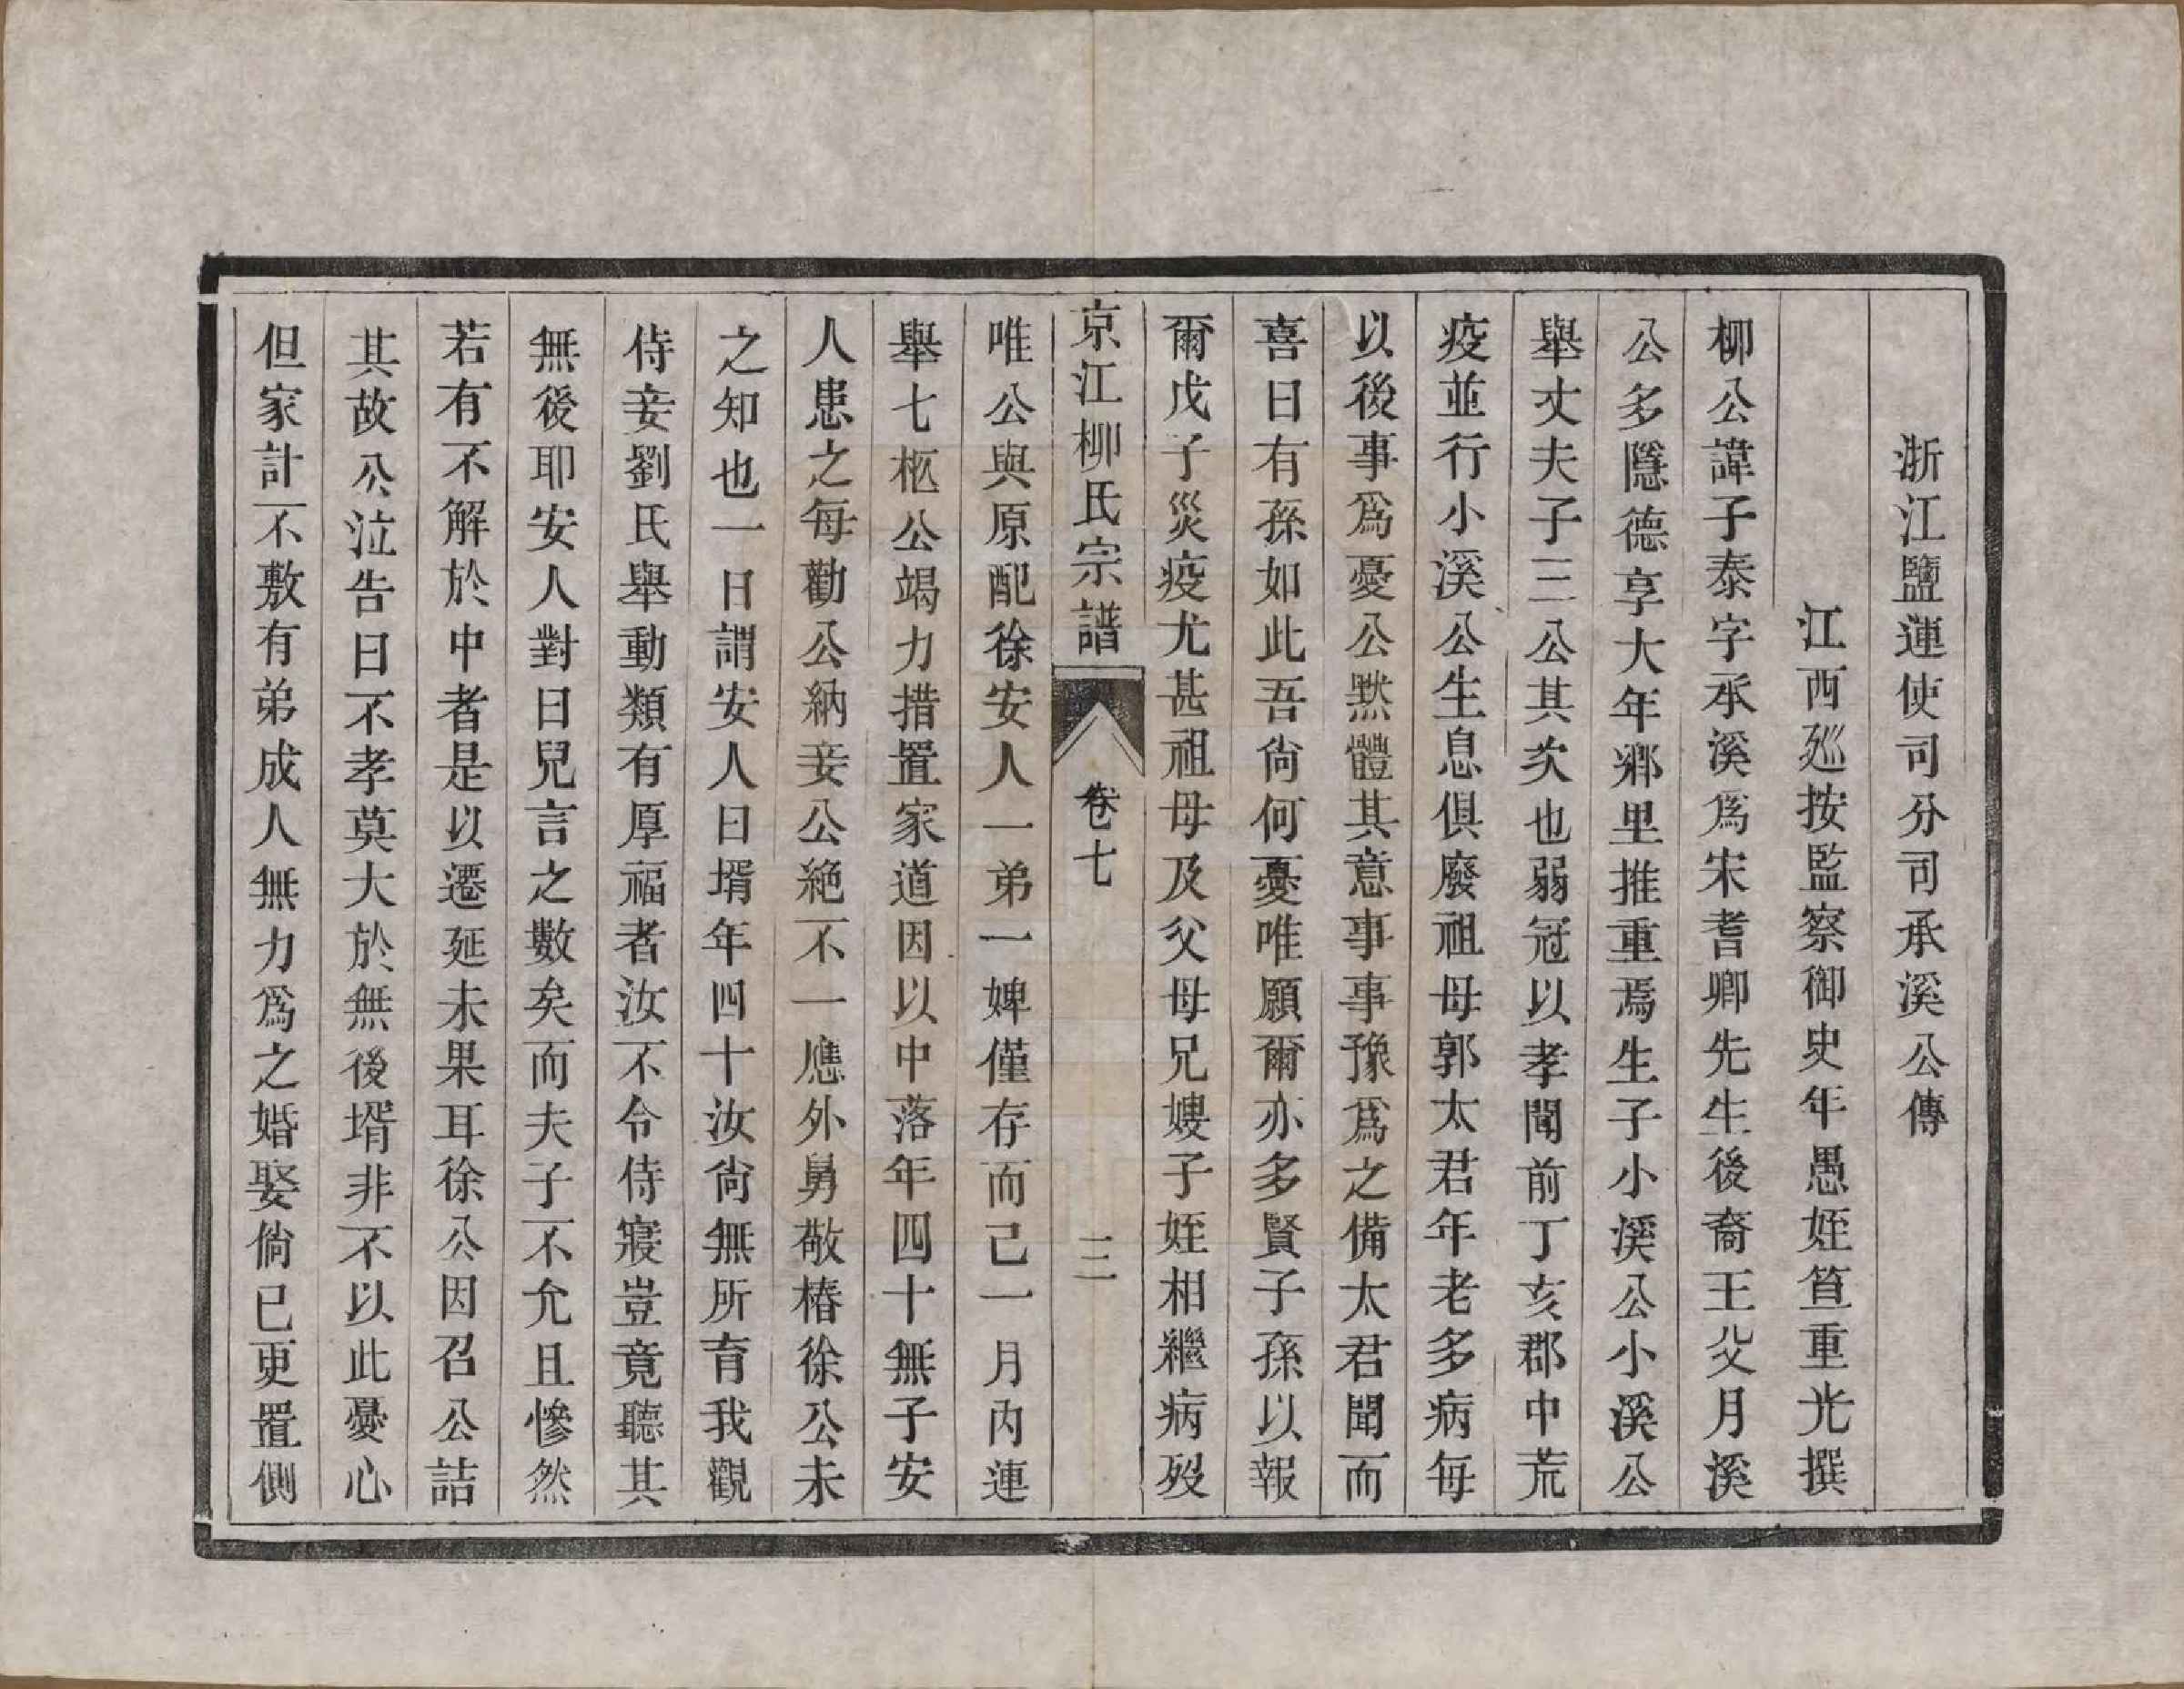 浙江鹽運使司分司承溪公傳
江西廵按監察御史年愚姪笪重光撰
柳公諱子泰字承溪爲宋耆卿先生後裔王父月溪
公多隱德享大年鄉里推重焉生子小溪公小溪公
舉丈夫子三公其次也弱冠以孝聞前丁亥郡中荒
疫並行小溪公生息俱廢祖母郭太君年老多病每
以後事爲憂公默體其意事事豫爲之備太君聞而
喜曰有孫如此吾尙何憂唯願爾亦多賢子孫以報
爾戊子災疫尤甚祖母及父母兄嫂子姪相繼病歿
京江柳氏宗譜 卷七 三
唯公與原配徐安人一弟一婢僅存而己一月內連
舉七柩公竭力措置家道因以中落年四十無子安
人患之每勸公納妾公絶不一應外舅敬椿徐公未
之知也一日謂安人曰壻年四十汝尙無所育我觀
侍妾劉氏舉動類有厚福者汝不令侍寢豈竟聽其
無後耶安人對曰兒言之數矣而夫子不允且慘然
若有不解於中者是以遷延未果耳徐公因召公詰
其故公泣告曰不孝莫大於無後壻非不以此憂心
但家計不敷有弟成人無力爲之婚娶倘已更置側